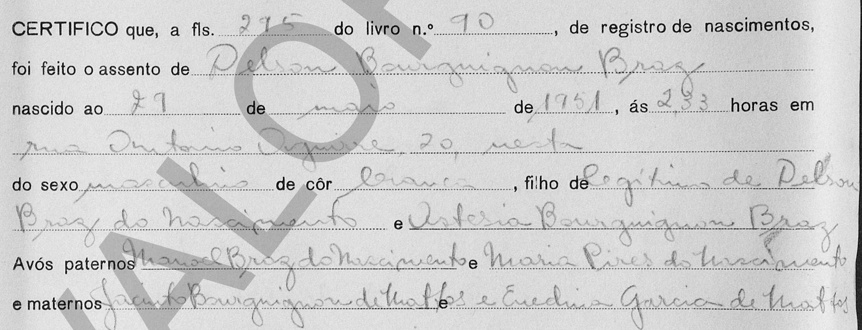 CERTIFICO que, a fls. 295 do livro n.º 90, de registro de nascimentos,
foi feito o assento de Delson Bourguignon Braz
nascido ao 29 de maio de 1951, ás 2,33 horas em
rua Antonio Aguirre, 20, nesta
do sexo masculino de côr branca, filho de legítimo de Delson
Braz do Nascimento e Astesia Bourguignon Braz
Avós paternos Manoel Braz do Nascimento e Maria Pires do Nascimento
e maternos Jacinto Bourguignon de Mattos e Enedina Garcia de Mattos
VALOR